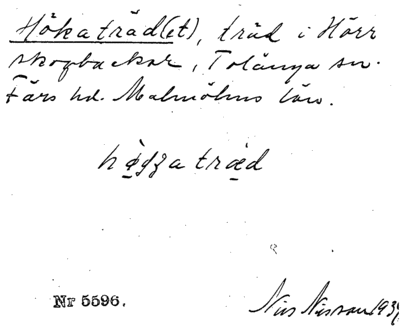 Hökaträd(et), träd i Hörr
skogbackar, Tolånga sn.
Färs hd. Malmöhus län.
hø̀gga træd
Nr 5596.
Nils Nilsson 1939